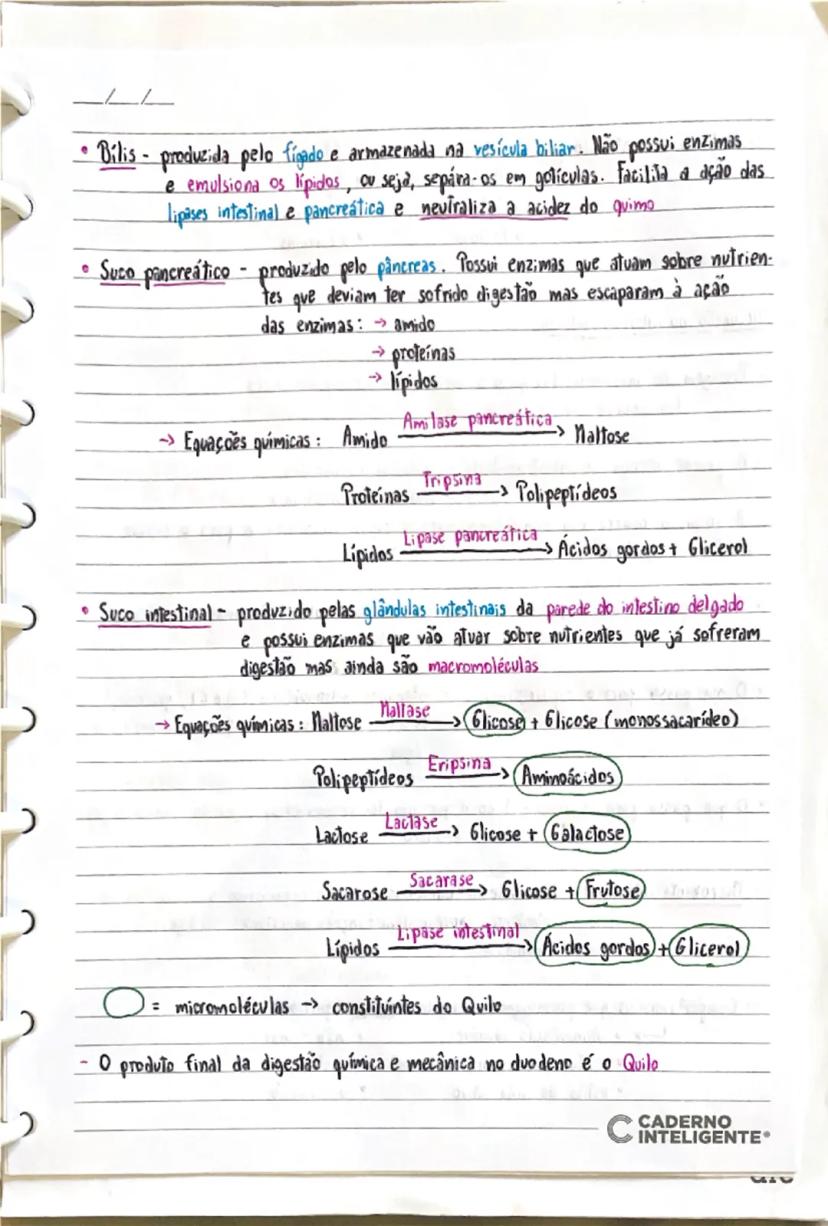 __/__/__
• Bílis - produzida pelo fígado e armazenada na vesícula biliar. Não possui enzimas
e emulsiona os lípidos, ou seja, sepára-os em gotículas. Facilita a ação das
lipases intestinal e pancreática e neutraliza a acidez do quimo
• Suco pancreático - produzido pelo pâncreas. Possui enzimas que atuam sobre nutrien-
tes que deviam ter sofrido digestão mas escaparam à ação
das enzimas: → amido
→ proteínas
→ lípidos
→ Equações químicas: Amido Amilase pancreática → Maltose
Proteínas Tripsina → Polipeptídeos
Lípidos Lipase pancreática → Ácidos gordos + Glicerol
• Suco intestinal - produzido pelas glândulas intestinais da parede do intestino delgado
e possui enzimas que vão atuar sobre nutrientes que já sofreram
digestão mas ainda são macromoléculas
→ Equações químicas: Maltose Maltase → Glicose + Glicose (monossacarídeo)
Polipeptídeos Eripsina → Aminoácidos
Lactose Lactase → Glicose + Galactose
Sacarose Sacarase → Glicose + Frutose
Lípidos Lipase intestinal → Ácidos gordos + Glicerol
= micromoléculas → constituíntes do Quilo
- O produto final da digestão química e mecânica no duodeno é o Quilo
CADERNO
INTELIGENTE